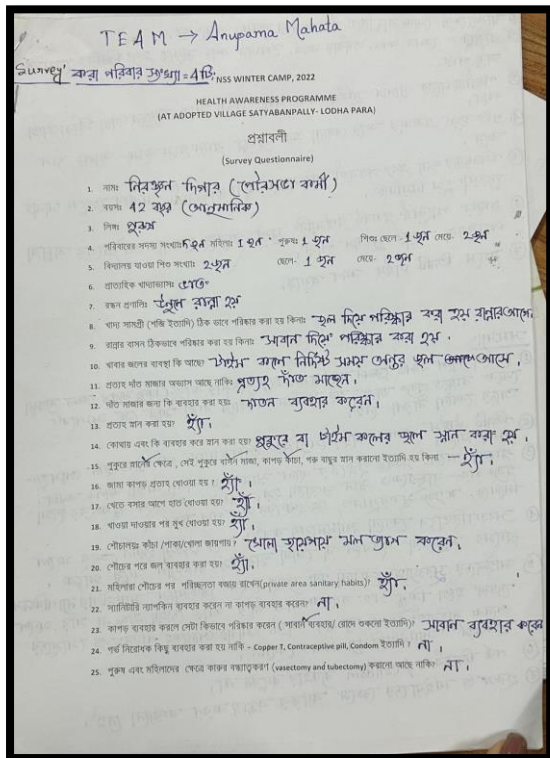 TEAM → Anupama Mahata
Survey করা পরিবার সংখ্যা = 4 টি
NSS WINTER CAMP, 2022
HEALTH AWARENESS PROGRAMME
(AT ADOPTED VILLAGE SATYABANPALLY- LODHA PARA)
প্রশ্নাবলী
(Survey Questionnaire)
1. নামঃ নিরঞ্জন দিগার (পৌরসভা কর্মী)
2. বয়সঃ 42 বছর (আনুমানিক)
3. লিঙ্গঃ পুরুষ
4. পরিবারের সদস্য সংখ্যাঃ 5 জন মহিলাঃ 1 জন পুরুষঃ 1 জন শিশুঃ ছেলে- 1 জন মেয়ে- 2 জন
5. বিদ্যালয় যাওয়া শিশু সংখ্যাঃ 2 জন ছেলে- 1 জন মেয়ে- 2 জন
6. প্রাত্যহিক খাদ্যাভ্যাসঃ ভাত
7. রন্ধন প্রণালিঃ উনুনে রান্না হয়
8. খাদ্য সামগ্রী (শব্জি ইত্যাদি) ঠিক ভাবে পরিষ্কার করা হয় কিনাঃ জল দিয়ে পরিষ্কার করা হয় রান্নার আগে
9. রান্নার বাসন ঠিকভাবে পরিষ্কার করা হয় কিনাঃ সাবান দিয়ে পরিষ্কার করা হয়।
10. খাবার জলের ব্যবস্থা কি আছে? টাইম কলে নির্দিষ্ট সময় অন্তর জল আসে।
11. প্রত্যহ দাঁত মাজার অভ্যাস আছে নাকিঃ প্রত্যহ দাঁত মাজেন।
12. দাঁত মাজার জন্য কি ব্যবহার করা হয়ঃ দাতন ব্যবহার করেন।
13. প্রত্যহ স্নান করা হয়? হ্যাঁ।
14. কোথায় এবং কি ব্যবহার করে স্নান করা হয়? পুকুরে বা টাইম কলের জলে স্নান করা হয়।
15. পুকুরে স্নানের ক্ষেত্রে, সেই পুকুরে বাসন মাজা, কাপড় কাঁচা, গরু বাছুর স্নান করানো ইত্যাদি হয় কিনা — হ্যাঁ।
16. জামা কাপড় প্রত্যহ ধোওয়া হয়? হ্যাঁ।
17. খেতে বসার আগে হাত ধোওয়া হয়? হ্যাঁ।
18. খাওয়া দাওয়ার পর মুখ ধোওয়া হয়? হ্যাঁ।
19. শৌচালয়ঃ কাঁচা /পাকা/খোলা জায়গায়? খোলা জায়গায় মল ত্যাগ করেন।
20. শৌচের পরে জল ব্যবহার করা হয়? হ্যাঁ।
21. মহিলারা শৌচের পর পরিচ্ছন্নতা বজায় রাখেন(private area sanitary habits)? হ্যাঁ।
22. স্যানিটারি ন্যাপকিন ব্যবহার করেন না কাপড় ব্যবহার করেন? না।
23. কাপড় ব্যবহার করলে সেটা কিভাবে পরিষ্কার করেন ( সাবান ব্যবহার/ রোদে শুকনো ইত্যাদি)? সাবান ব্যবহার করেন
24. গর্ভ নিরোধক কিছু ব্যবহার করা হয় নাকি - Copper T, Contraceptive pill, Condom ইত্যাদি? না।
25. পুরুষ এবং মহিলাদের ক্ষেত্রে কারুর বন্ধ্যাত্বকরণ (vasectomy and tubectomy) করানো আছে নাকি? না।